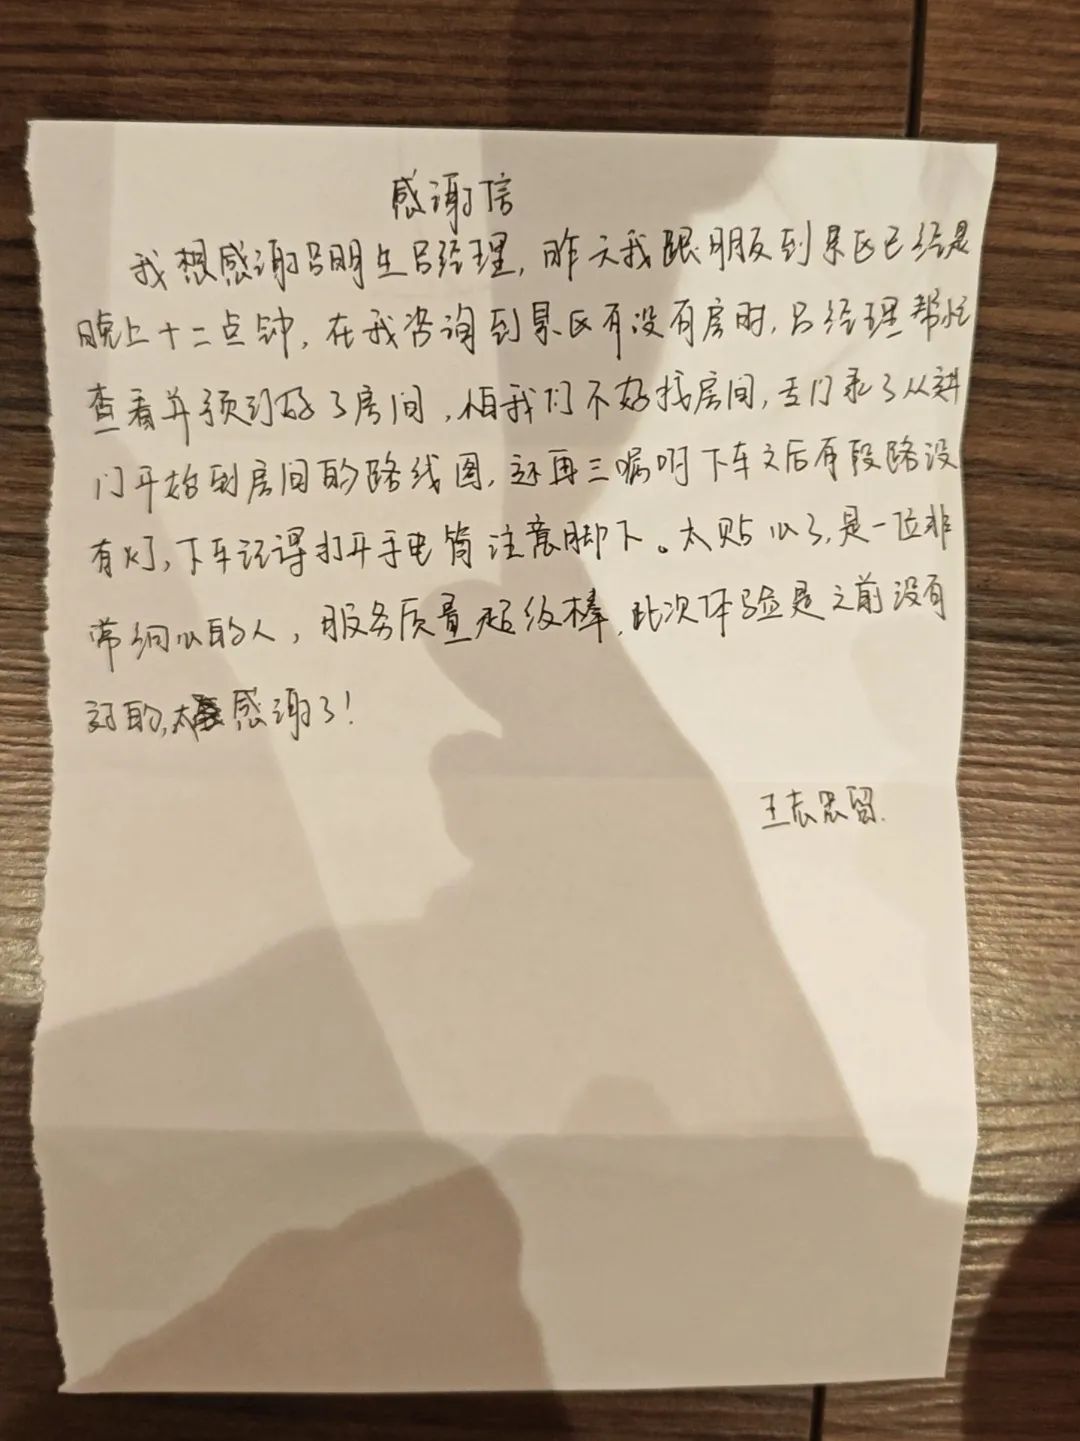 感谢信
我想感谢吕明生吕经理,昨天我跟朋友到景区已经是
晚上十二点钟,在我咨询到景区有没有房时,吕经理帮忙
查看并预订好了房间,怕我们不好找房间,专门录了从
门开始到房间的路线图,还再三嘱咐下车之后有段路没
有灯,下车记得打开手电筒注意脚下。太贴心了,是一位非
常细心的人,服务质量超级棒,此次体验是之前没有
过的,太感谢了!
王志忠留.